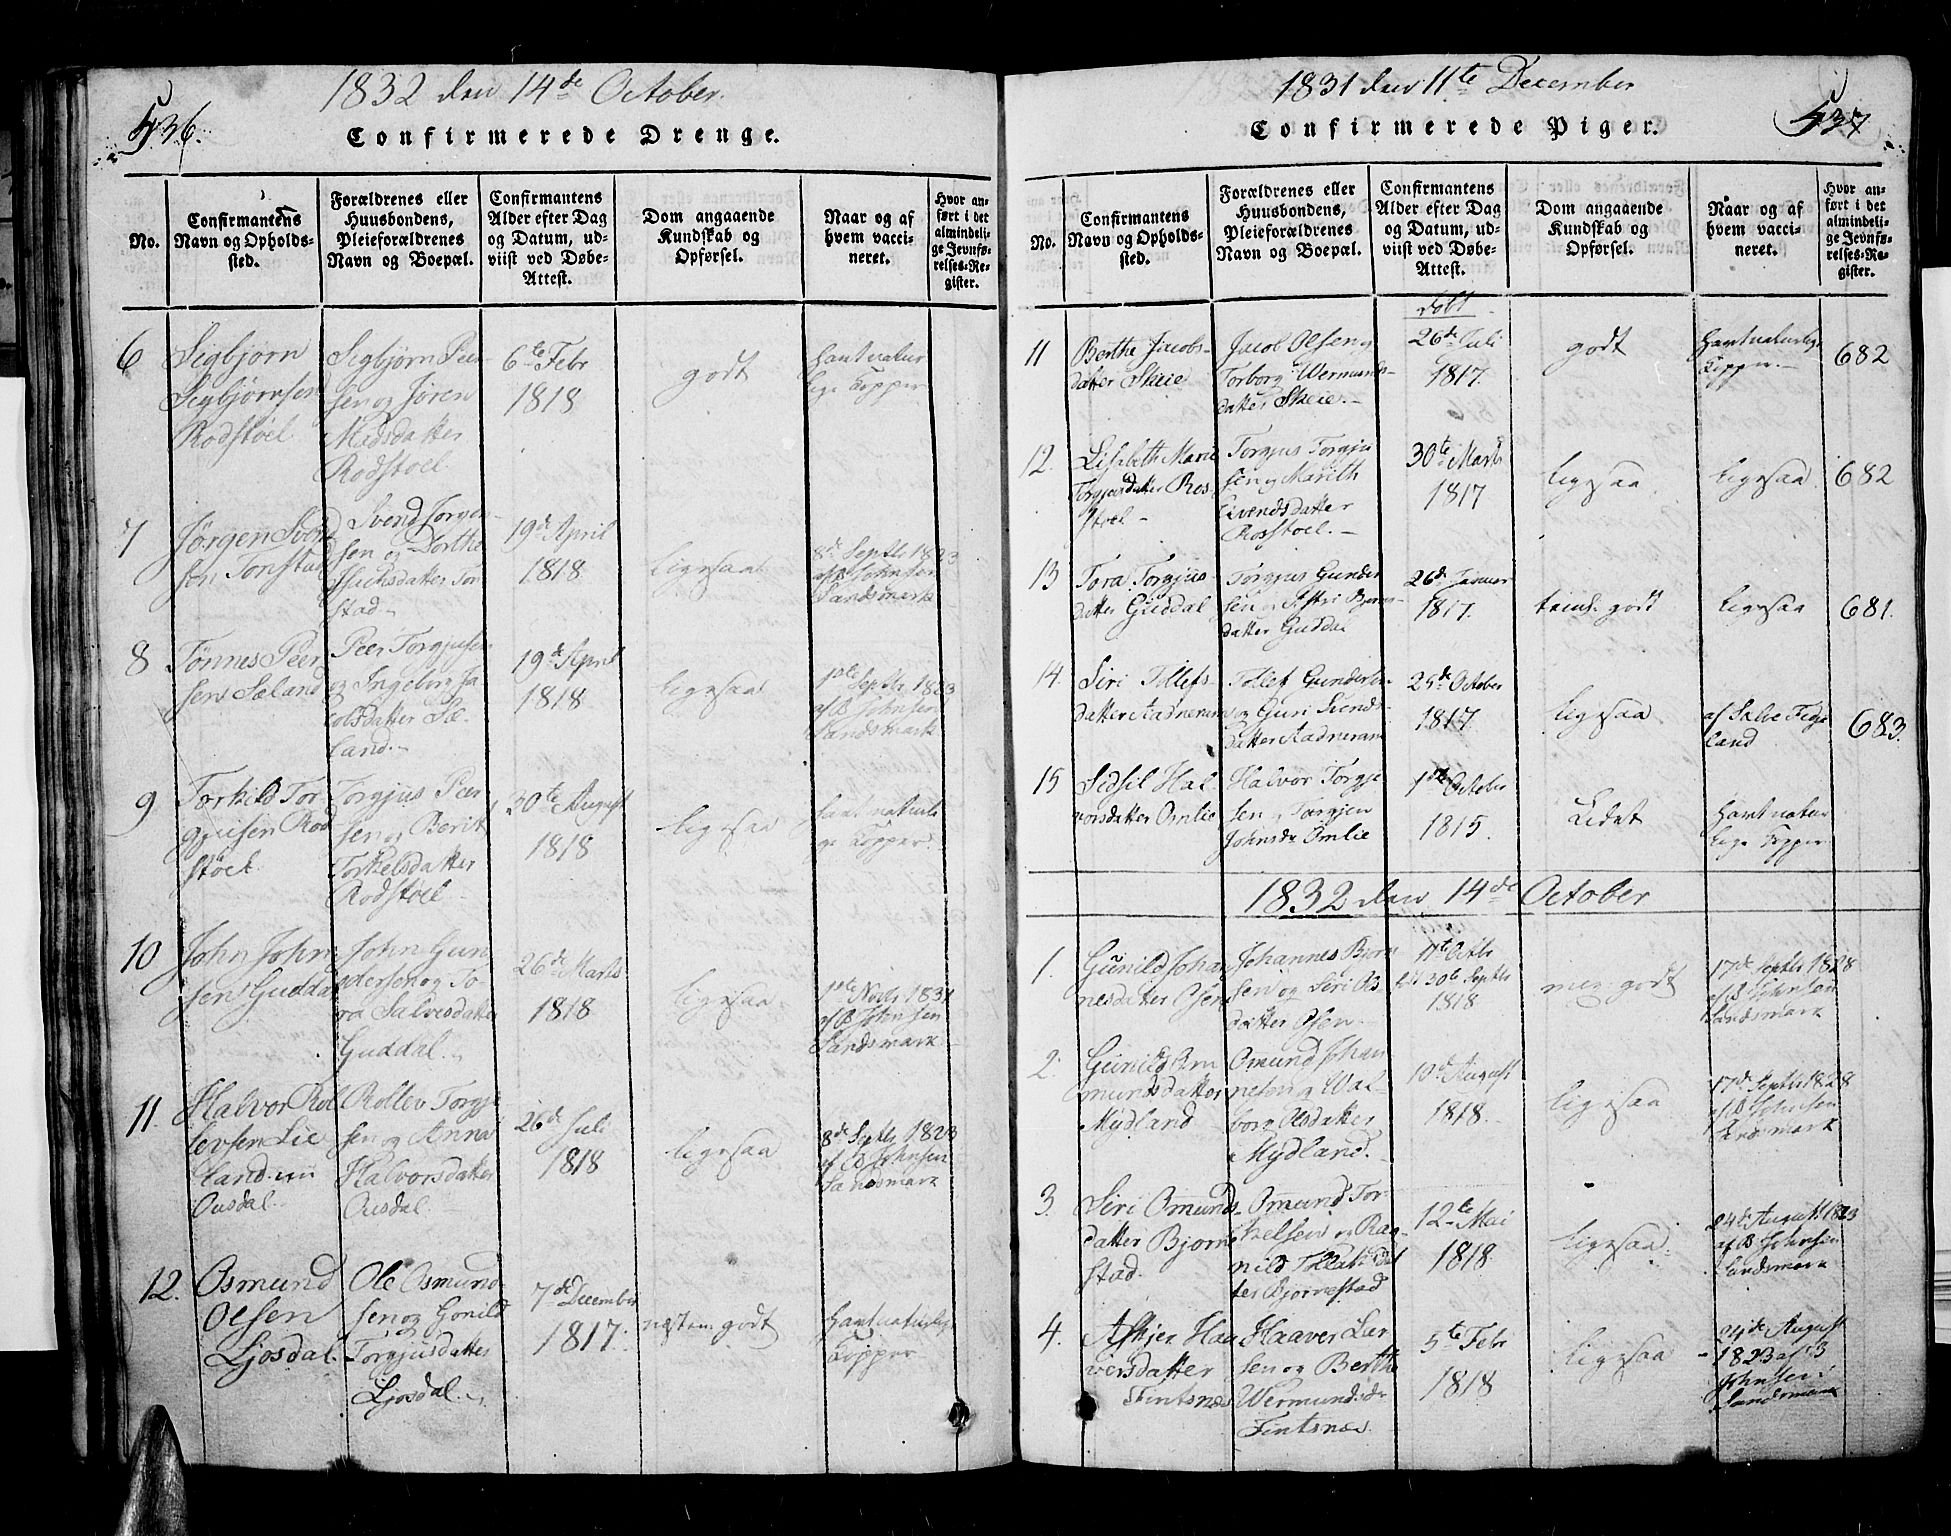 436.
1832 den 14de October.
Confirmerede Drenge.
No.
Confirmantens Navn og Opholds-sted.
Forældrenes eller Huusbondens, Pleieforældrenes Navn og Boepæl.
Confirmantens Alder efter Dag og Datum, ud-viist ved Døbe-Attest.
Dom angaaende Kundskab og Opførsel.
Naar og af hvem vacci-neret.
Hvor an-ført i det almindeli-ge Jevnfø-relses-Re-gister.
6
Sigbjørn
Sigbjørnsen
Rodstøel
Sigbjørn Peer-
sen og Jøren
Rodstoel
6te Febr
1818
godt
havt natur
lige Kopper
7
Jørgen Svend
sen Tonstad
Svend Jørgen-
sen og Dorthe
stad
19de April
1818
ligesaa
8de Septbr 1823
af B Johnsen
Sandsmark
8
Tønnes Peer
sen Sæland
Peer Torgjusen
og Ingeborg Ja
cobsdatter Sæ-
land.
19de April
1818
ligesaa
1ste Septbr 1823
af B Johnsen
Sandsmark
9
Torkild Tor
gjusen Rod
støel
Torgjus Peer
sen og Berit
Torkelsdatter
Rodstoel
30te August
1818
ligesaa
havt naturli
ge Kopper.
10
John John
sen Guddal
John Gun
dersen og To-
ra Salvesdatter
Guddal
26de Marts
1818
ligesaa
1ste Novbr 1831
af B Johnsen
Sandsmark
11.
Halvor Rol
levsen Lie
land
Ousdal
Rollev Torgju
sen og Anna
Halvorsdatter
Ousdal
26de Juli
1818
ligesaa
8de Septbr 1823
af B Johnsen
Sandsmark
12.
Osmund
Olsen
Ljosdal
Ole Osmund-
sen og Gonild
Torgjusdatter
Ljosdal
7de December
1817.
næsten godt
havt naturlige
Kopper
1831 den 11te December
437
Confirmerede Piger.
No.
Confirmantens Navn og Opholds-sted.
Forældrenes eller Huusbondens, Pleieforældrenes Navn og Boepæl.
Confirmantens Alder efter Dag og Datum, ud-viist ved Døbe-Attest.
Dom angaaende Kundskab og Opførsel.
Naar og af hvem vacci-neret.
Hvor an-ført i det almindeli-ge Jevnfø-relses-Re-gister.
døbt
11
Berthe Jacobs-
datter Skeie
Jacob Olsen og
Torborg Wermunds-
datter Skeie.
26de Juli
1817.
godt
havt naturlige
Kopper.
682
12.
Lisebeth Marie
Torgjusdatter Ros
stoel
Torgjus Torgju
sen og Marith
Eivendsdatter
Rosstoel.
30te Marts
1817
ligesaa
ligesaa
682
13
Tora Torgjus-
datter Guddal
Torgjus Gunder
sen og
datter Guddal
26de Januar
1817.
godt
ligesaa
681.
14.
Siri Tollefs-
datter Aadneram
Tollef Gundersen
og Guri Svends
datter Aadneram
October
1817.
ligesaa
af Salve
land
683.
15
Sidsil Hal
vorsdatter Omlie
Halvor Torgju
sen og
Johnsdr Omlie
1ste October
1815.
Lidet
havt natur
lige Kopper
1832 den 14de October
1.
Gunild Johan
nesdatter Osen
Johannes Bjørn
sen og Siri
datter Osen
11te Octbr
30te Septbr
1818
meg. godt
17de Septbr 1828
af B Johnsen
Sandsmark
2.
Gunild Om
mundsdatter
Mydland
Omund Johan
nesen og Wal
borg Olsdatter
Mydland.
10de August
1818.
ligesaa
17de Septbr 1828
af B Johnsen
Sandsmark
3.
Siri Omunds-
datter Bjørne
stad.
Omund Tor-
kelsen og Rag-
nild
ter Bjørnestad
12te Mai
1818.
ligesaa
24de August 1823
af B Johnsen
Sandsmark
4.
Askjer Haa
versdatter
Fintsnæs
Haaver Lar
sen og Berthe
Wermundsdr
Fintsnæs
5te Febr
1818
ligesaa
24de August
1823 af B
Johnsen
Sandsmark